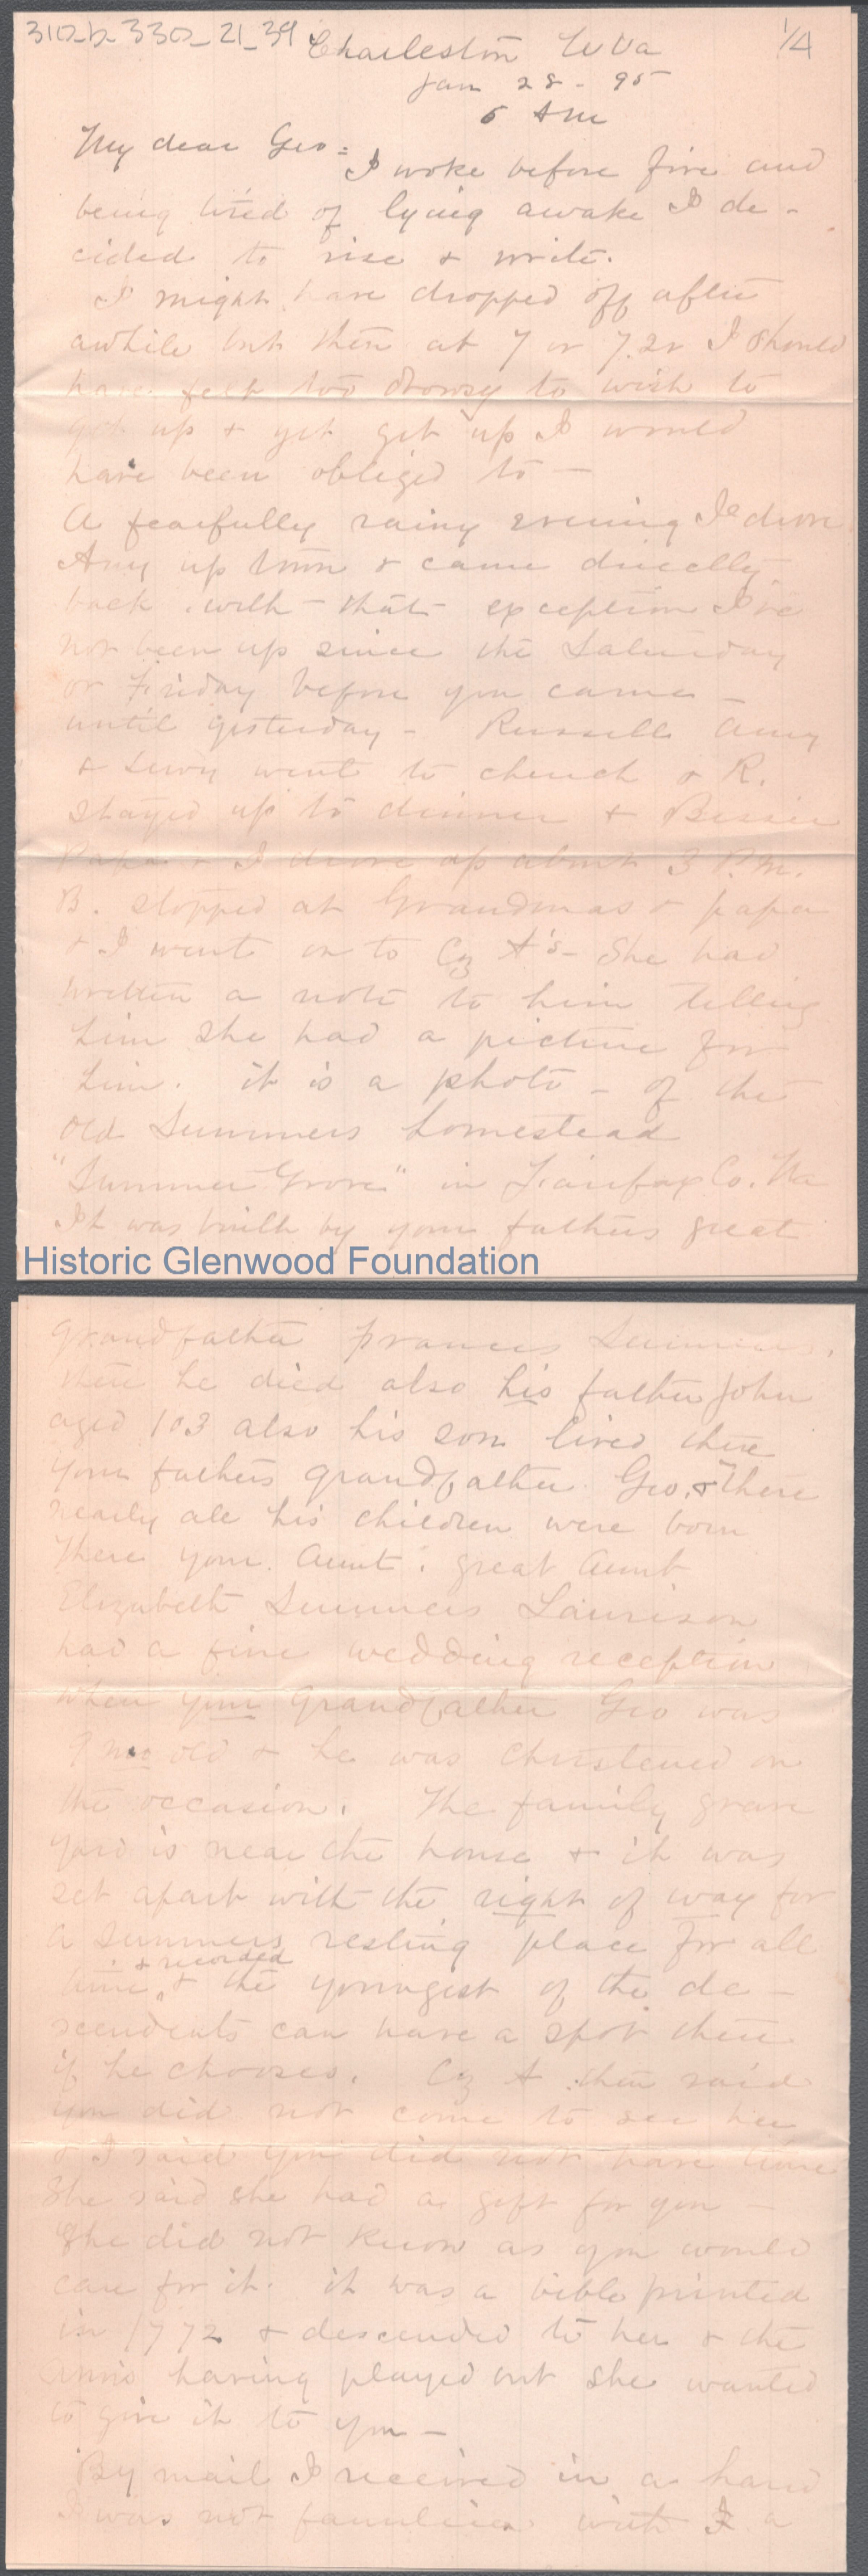 310-b-330-21-39 1/4
Charleston W Va
Jan 28 - 95
5 AM
My dear Geo = I woke before five and
being tired of lying awake I de-
cided to rise & write.
I might have dropped off after
awhile but then at 7 or 7.20 I should
have felt too drowsy to wish to
get up & yet get up I would
have been obliged to -
A fearfully rainy evening I drove
Amy up town & came directly
back. with - that - exception I've
not been up since the Saturday
or Friday before you came -
until yesterday - Russell Amy
& Lewy went to church & R.
stayed up to dinner & Bessie
Papa & I drove up about 3 P.M.
B. stopped at Grandmas & papa
& I went on to Cz A's - She had
written a note to him telling
him she had a picture for
him. it is a photo - of the
old Summers homestead
"Summer Grove" in Fairfax Co. Va
It was built by your fathers great
Historic Glenwood Foundation
grandfather Frances Summers.
there he died also his father John
aged 103 also his son lived there
your fathers grandfather Geo. & there
nearly all his children were born
There your Aunt. great Aunt
Elizabeth Summers
had a fine wedding reception
when your grandfather Geo was
9 mo old & he was christened on
the occasion. The family grave
yard is near the house & it was
set apart with the right of way for
a Summers resting place for all
time & recorded & the youngest of the de -
scendents can have a spot there
if he chooses. Cz A then said
you did not come to see her
& I said you did not have time
She said she had a gift for you -
She did not know as you would
care for it. it was a bible printed
in 1772 & descended to her & the
having played out she wanted
to give it to you -
By mail I received in a hand
I was not familiar with a